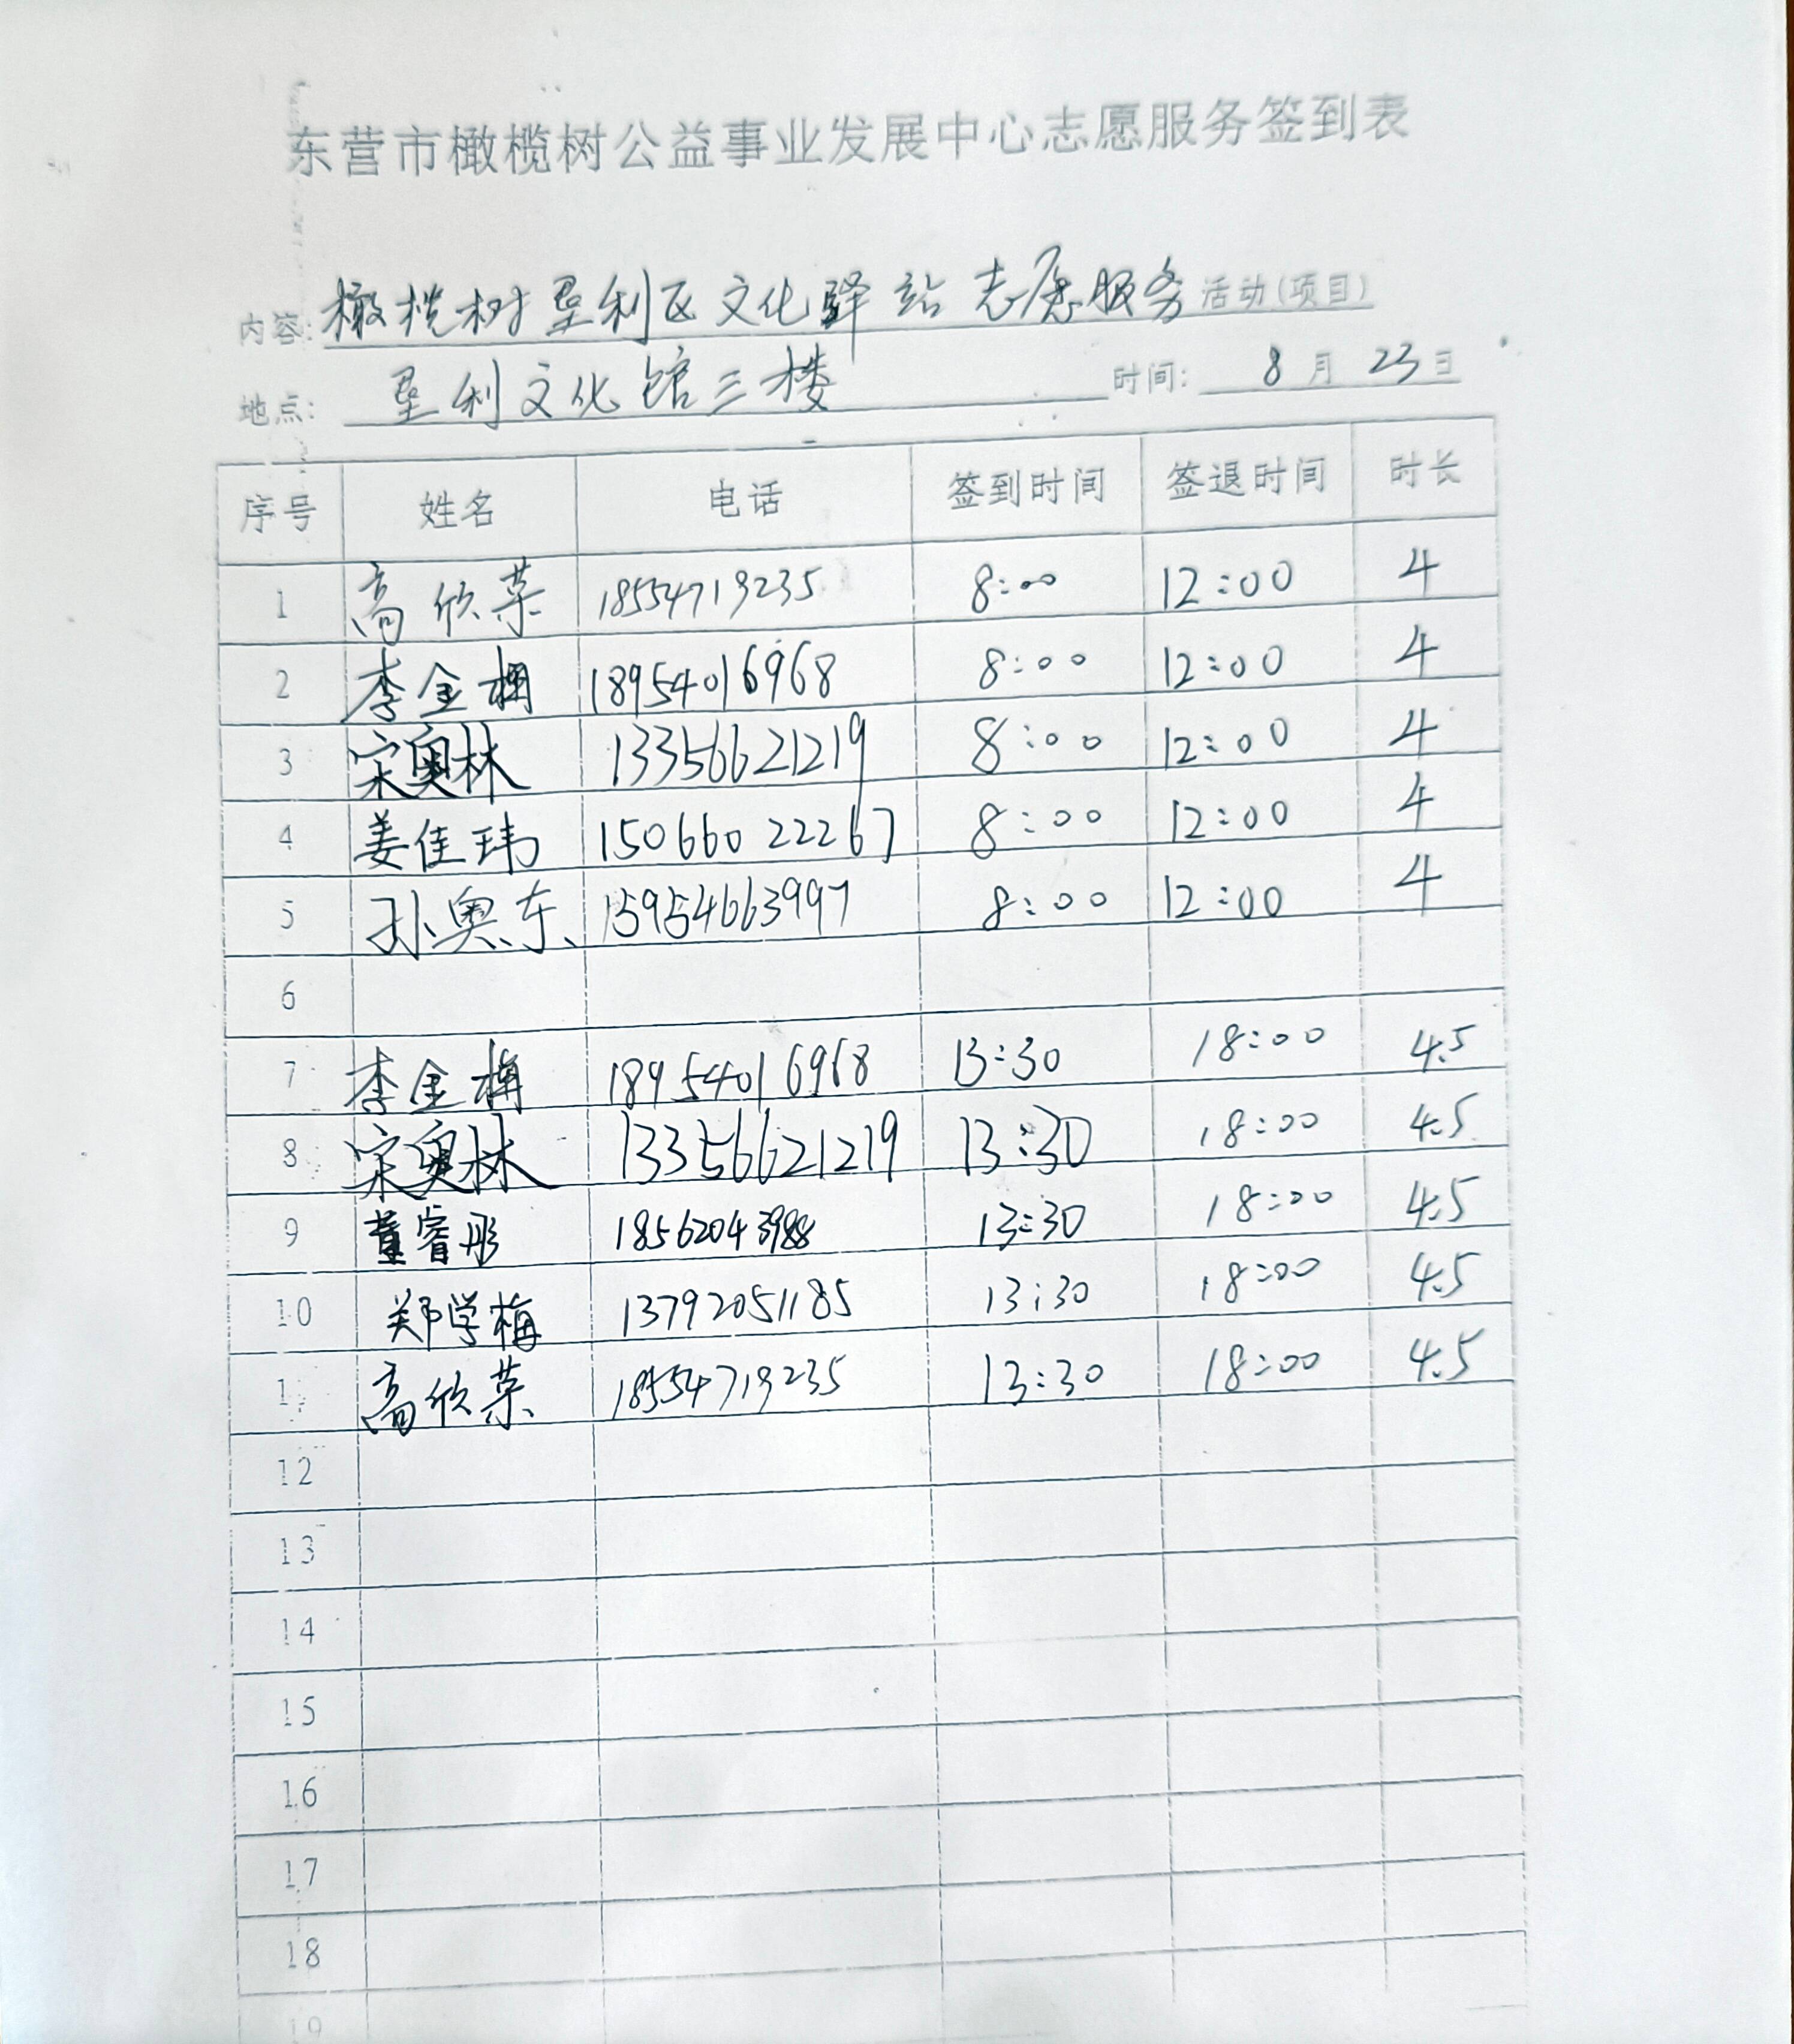 东营市橄榄树公益事业发展中心志愿服务签到表
内容: 橄榄树垦利区文化驿站志愿服务活动(项目)
地点: 垦利文化馆三楼 时间: 8月23日
序号 姓名 电话 签到时间 签退时间 时长
1 高欣荣 18554719235 8:00 12:00 4
2 李金梅 18954016968 8:00 12:00 4
3 宋奥林 13356621219 8:00 12:00 4
4 姜佳玮 15066022267 8:00 12:00 4
5 孙奥东 15954663997 8:00 12:00 4
6
7 李金梅 18954016968 13:30 18:00 4.5
8 宋奥林 13356621219 13:30 18:00 4.5
9 董睿彤 18562043988 13:30 18:00 4.5
10 郑学梅 13792051185 13:30 18:00 4.5
1 高欣荣 18554719235 13:30 18:00 4.5
12
13
14
15
16
17
18
19